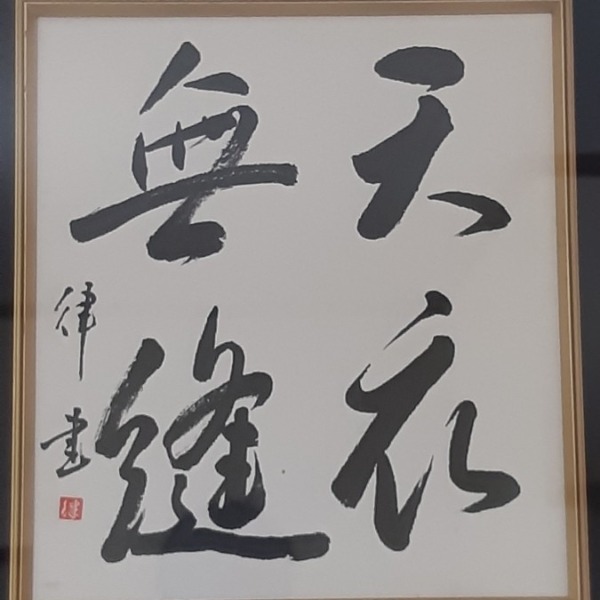 天衣
無縫
律書